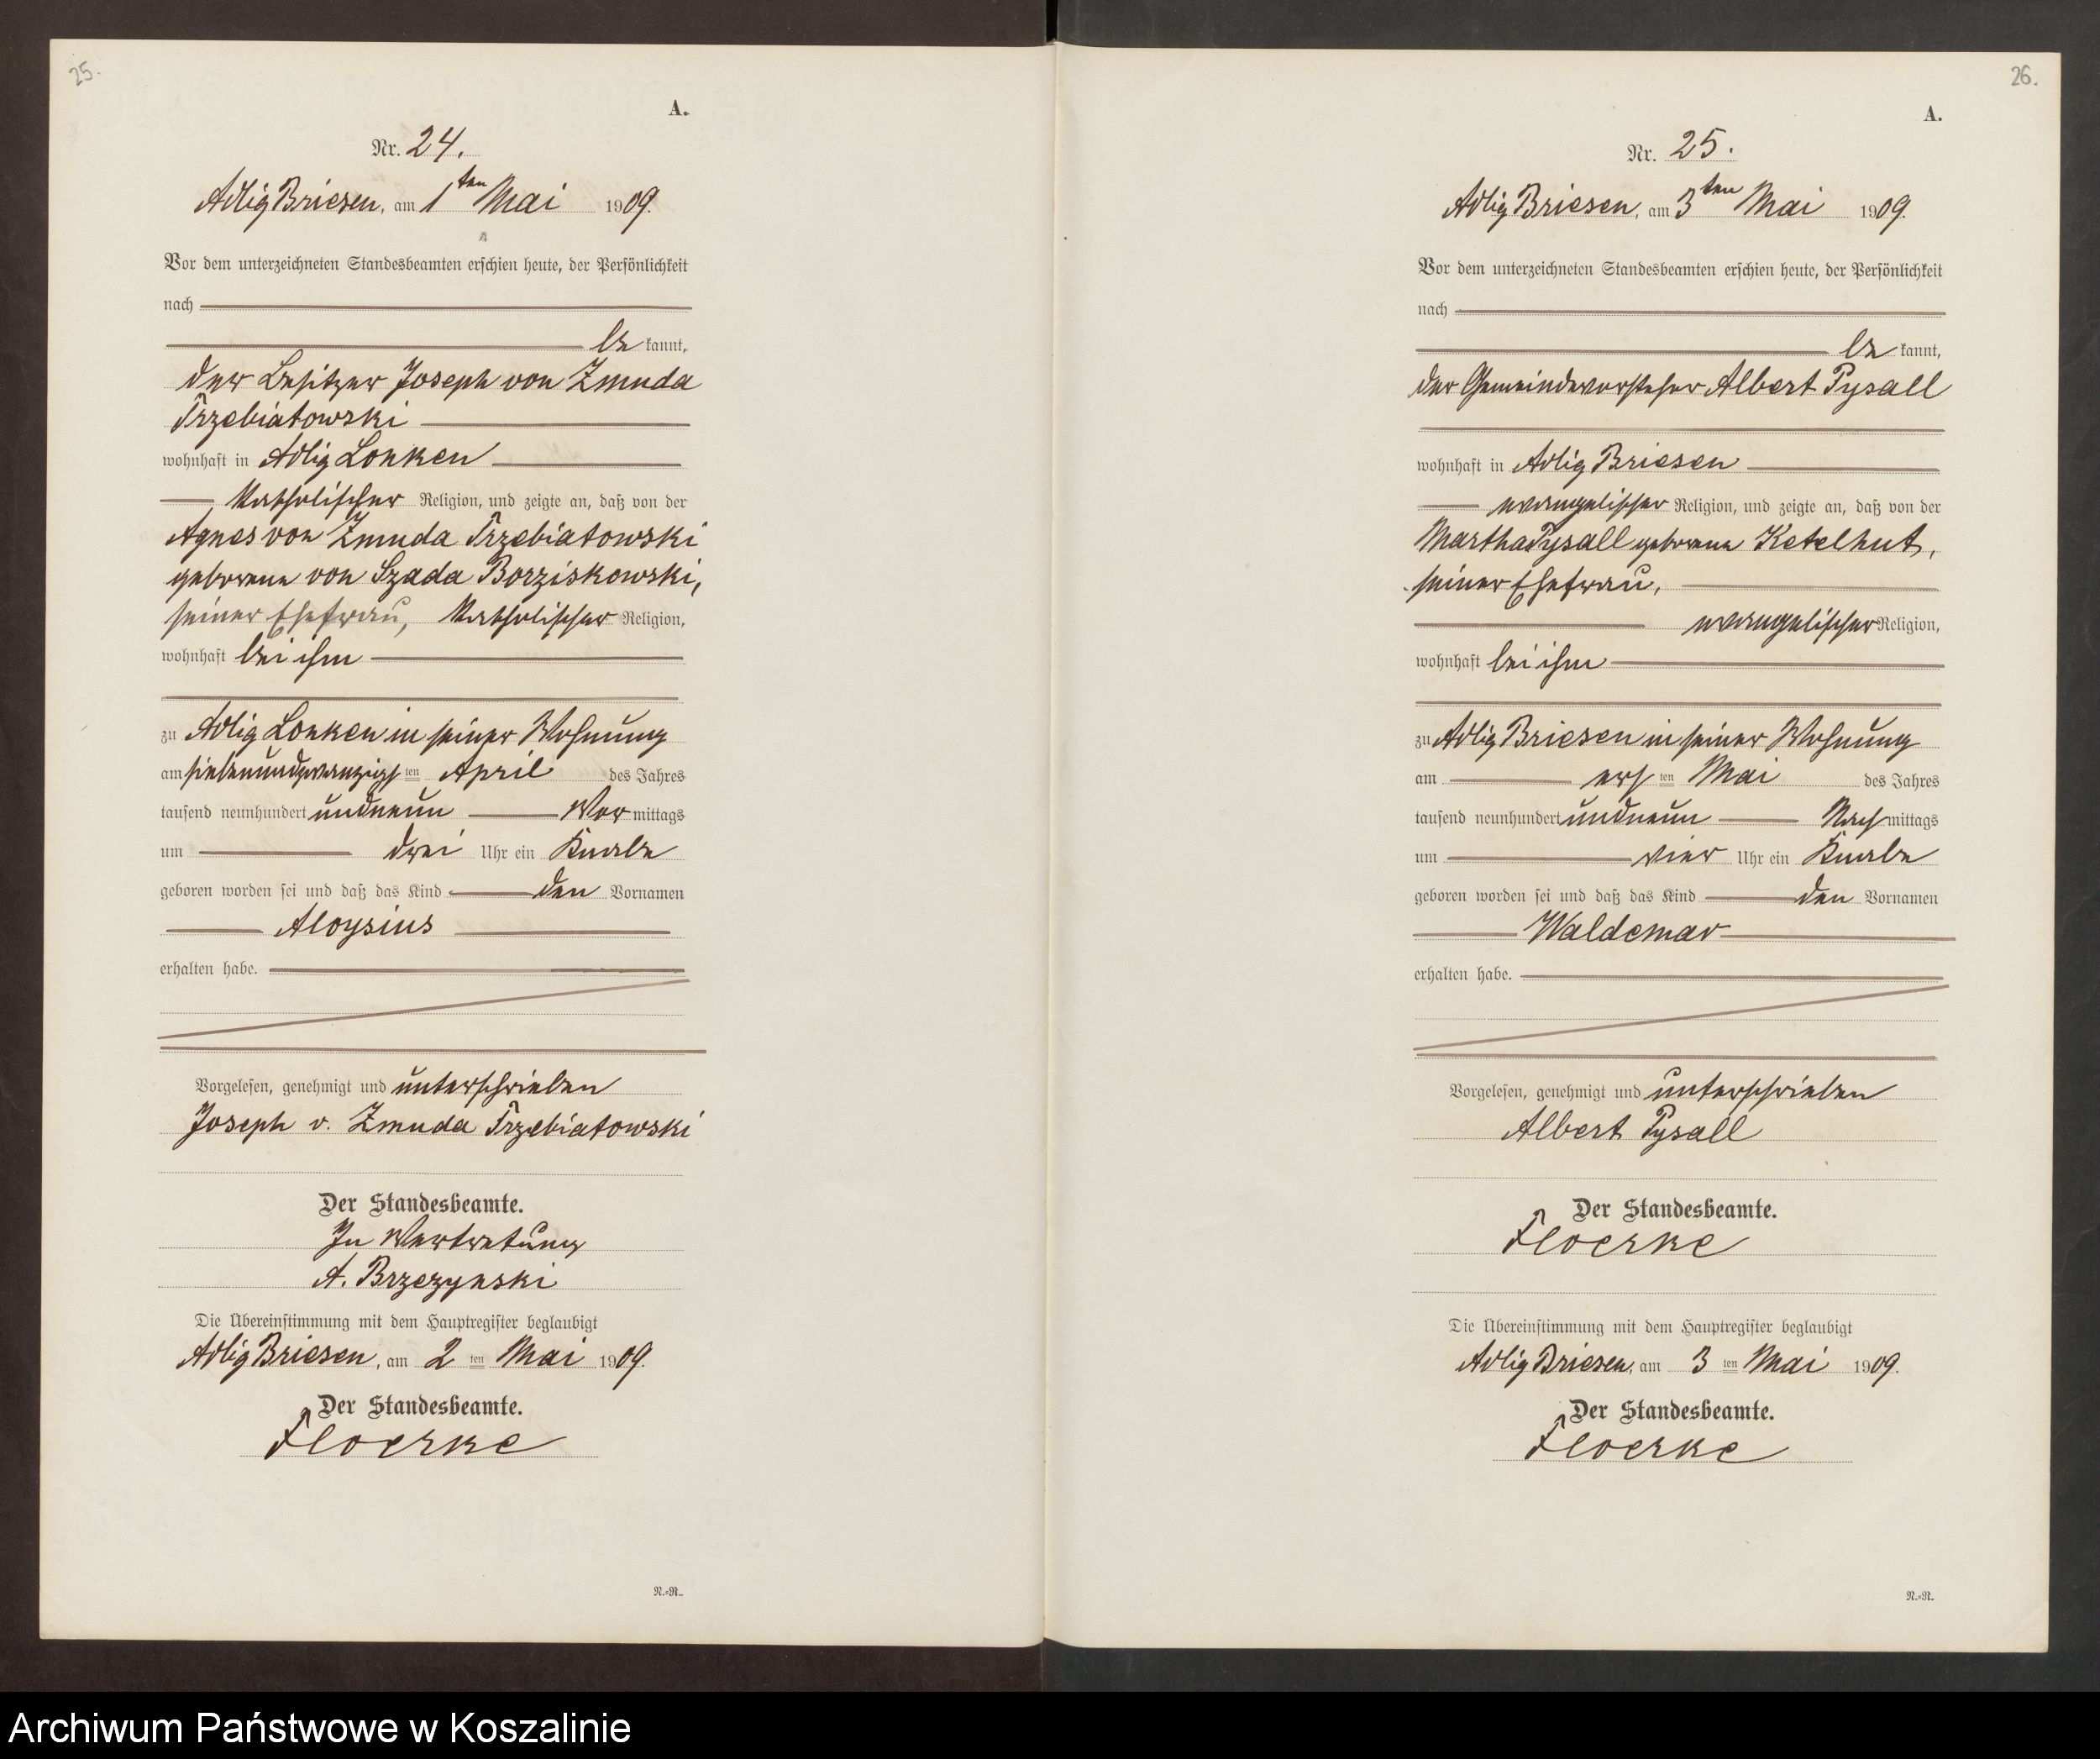 25.
A.
Nr. 24.
Adlig Briesen, am 1ten Mai 1909.
Vor dem unterzeichneten Standesbeamten erschien heute, der Persönlichkeit
nach
be kannt,
der Besitzer Joseph von Zmuda
Trzebiatowski
wohnhaft in Adlig Lonken
katholischer Religion, und zeigte an, daß von der
Agnes von Zmuda Trzebiatowski
geborene von Szada Borziskowski,
seiner Ehefrau, katholischer Religion,
wohnhaft bei ihm
zu Adlig Lonken in seiner Wohnung
am siebenundzwanzigsten April des Jahres
tausend neunhundert undneun Vor mittags
um drei Uhr ein Knabe
geboren worden sei und daß das Kind den Vornamen
Aloysius
erhalten habe.
Vorgelesen, genehmigt und unterschrieben
Joseph v. Zmuda Trzebiatowski
Der Standesbeamte.
In Vertretung
A. Brzezynski
Die Übereinstimmung mit dem Hauptregister beglaubigt
Adlig Briesen, am 2ten Mai 1909.
Der Standesbeamte.
Floerke
N.-R.
26.
A.
Nr. 25.
Adlig Briesen, am 3ten Mai 1909.
Vor dem unterzeichneten Standesbeamten erschien heute, der Persönlichkeit
nach
be kannt,
der Gemeindevorsteher Albert Pysall
wohnhaft in Adlig Briesen
evangelischer Religion, und zeigte an, daß von der
Martha Pysall geborene Ketelhut,
seiner Ehefrau,
evangelischer Religion,
wohnhaft bei ihm
zu Adlig Briesen in seiner Wohnung
am ersten Mai des Jahres
tausend neunhundert undneun Nach mittags
um vier Uhr ein Knabe
geboren worden sei und daß das Kind den Vornamen
Waldemar
erhalten habe.
Vorgelesen, genehmigt und unterschrieben
Albert Pysall
Der Standesbeamte.
Floerke
Die Übereinstimmung mit dem Hauptregister beglaubigt
Adlig Briesen, am 3ten Mai 1909.
Der Standesbeamte.
Floerke
N.-R.
Archiwum Państwowe w Koszalinie